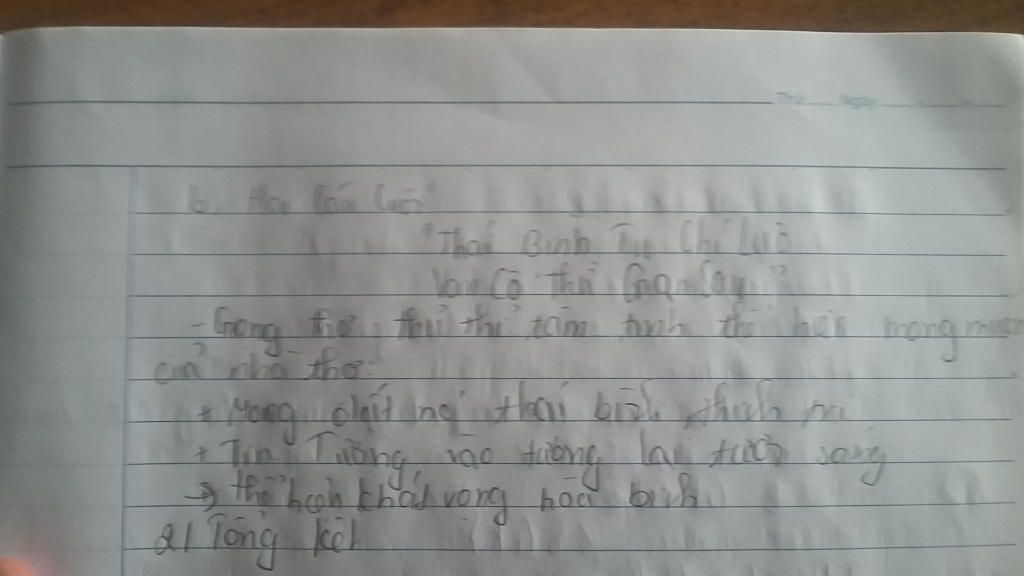 Thứ Ngày
b. Hai câu cuối
"Thái Bình Tu Chí Lực
Vạn Cổ Thử Gian San"
- Giọng thơ thủ thỉ tâm tình thể hiện mong muốn
của nhà thơ:
+ Mong đất nc thái bình thịnh trị
+ Tin Tưởng vào tương lai tươi sáng
→ thể hiện khát vọng hòa bình
2/ Tổng kết